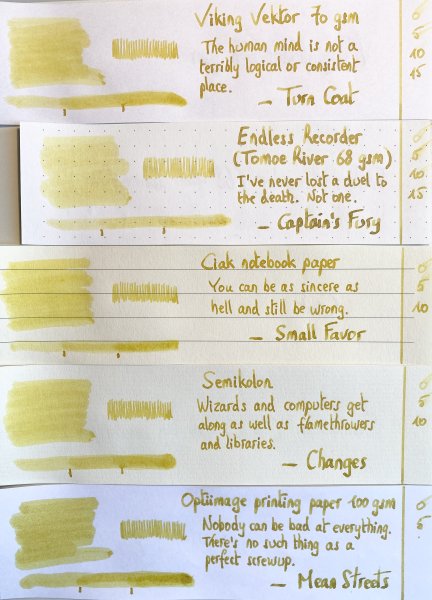 Viking Vektor 70 gsm
The human mind is not a
terribly logical or consistent
place.
— Turn Coat
0
5
10
15
Endless Recorder
(Tomoe River 68 gsm)
I've never lost a duel to
the death. Not one.
— Captain's Fury
0
5
10
15
Ciak notebook paper
You can be as sincere as
hell and still be wrong.
— Small Favor
0
5
10
Semikolon
Wizards and computers get
along as well as flamethrowers
and libraries.
— Changes
0
5
10
Optiimage printing paper 100 gsm
Nobody can be bad at everything.
There's no such thing as a
perfect screwup.
— Mean Streets
0
5